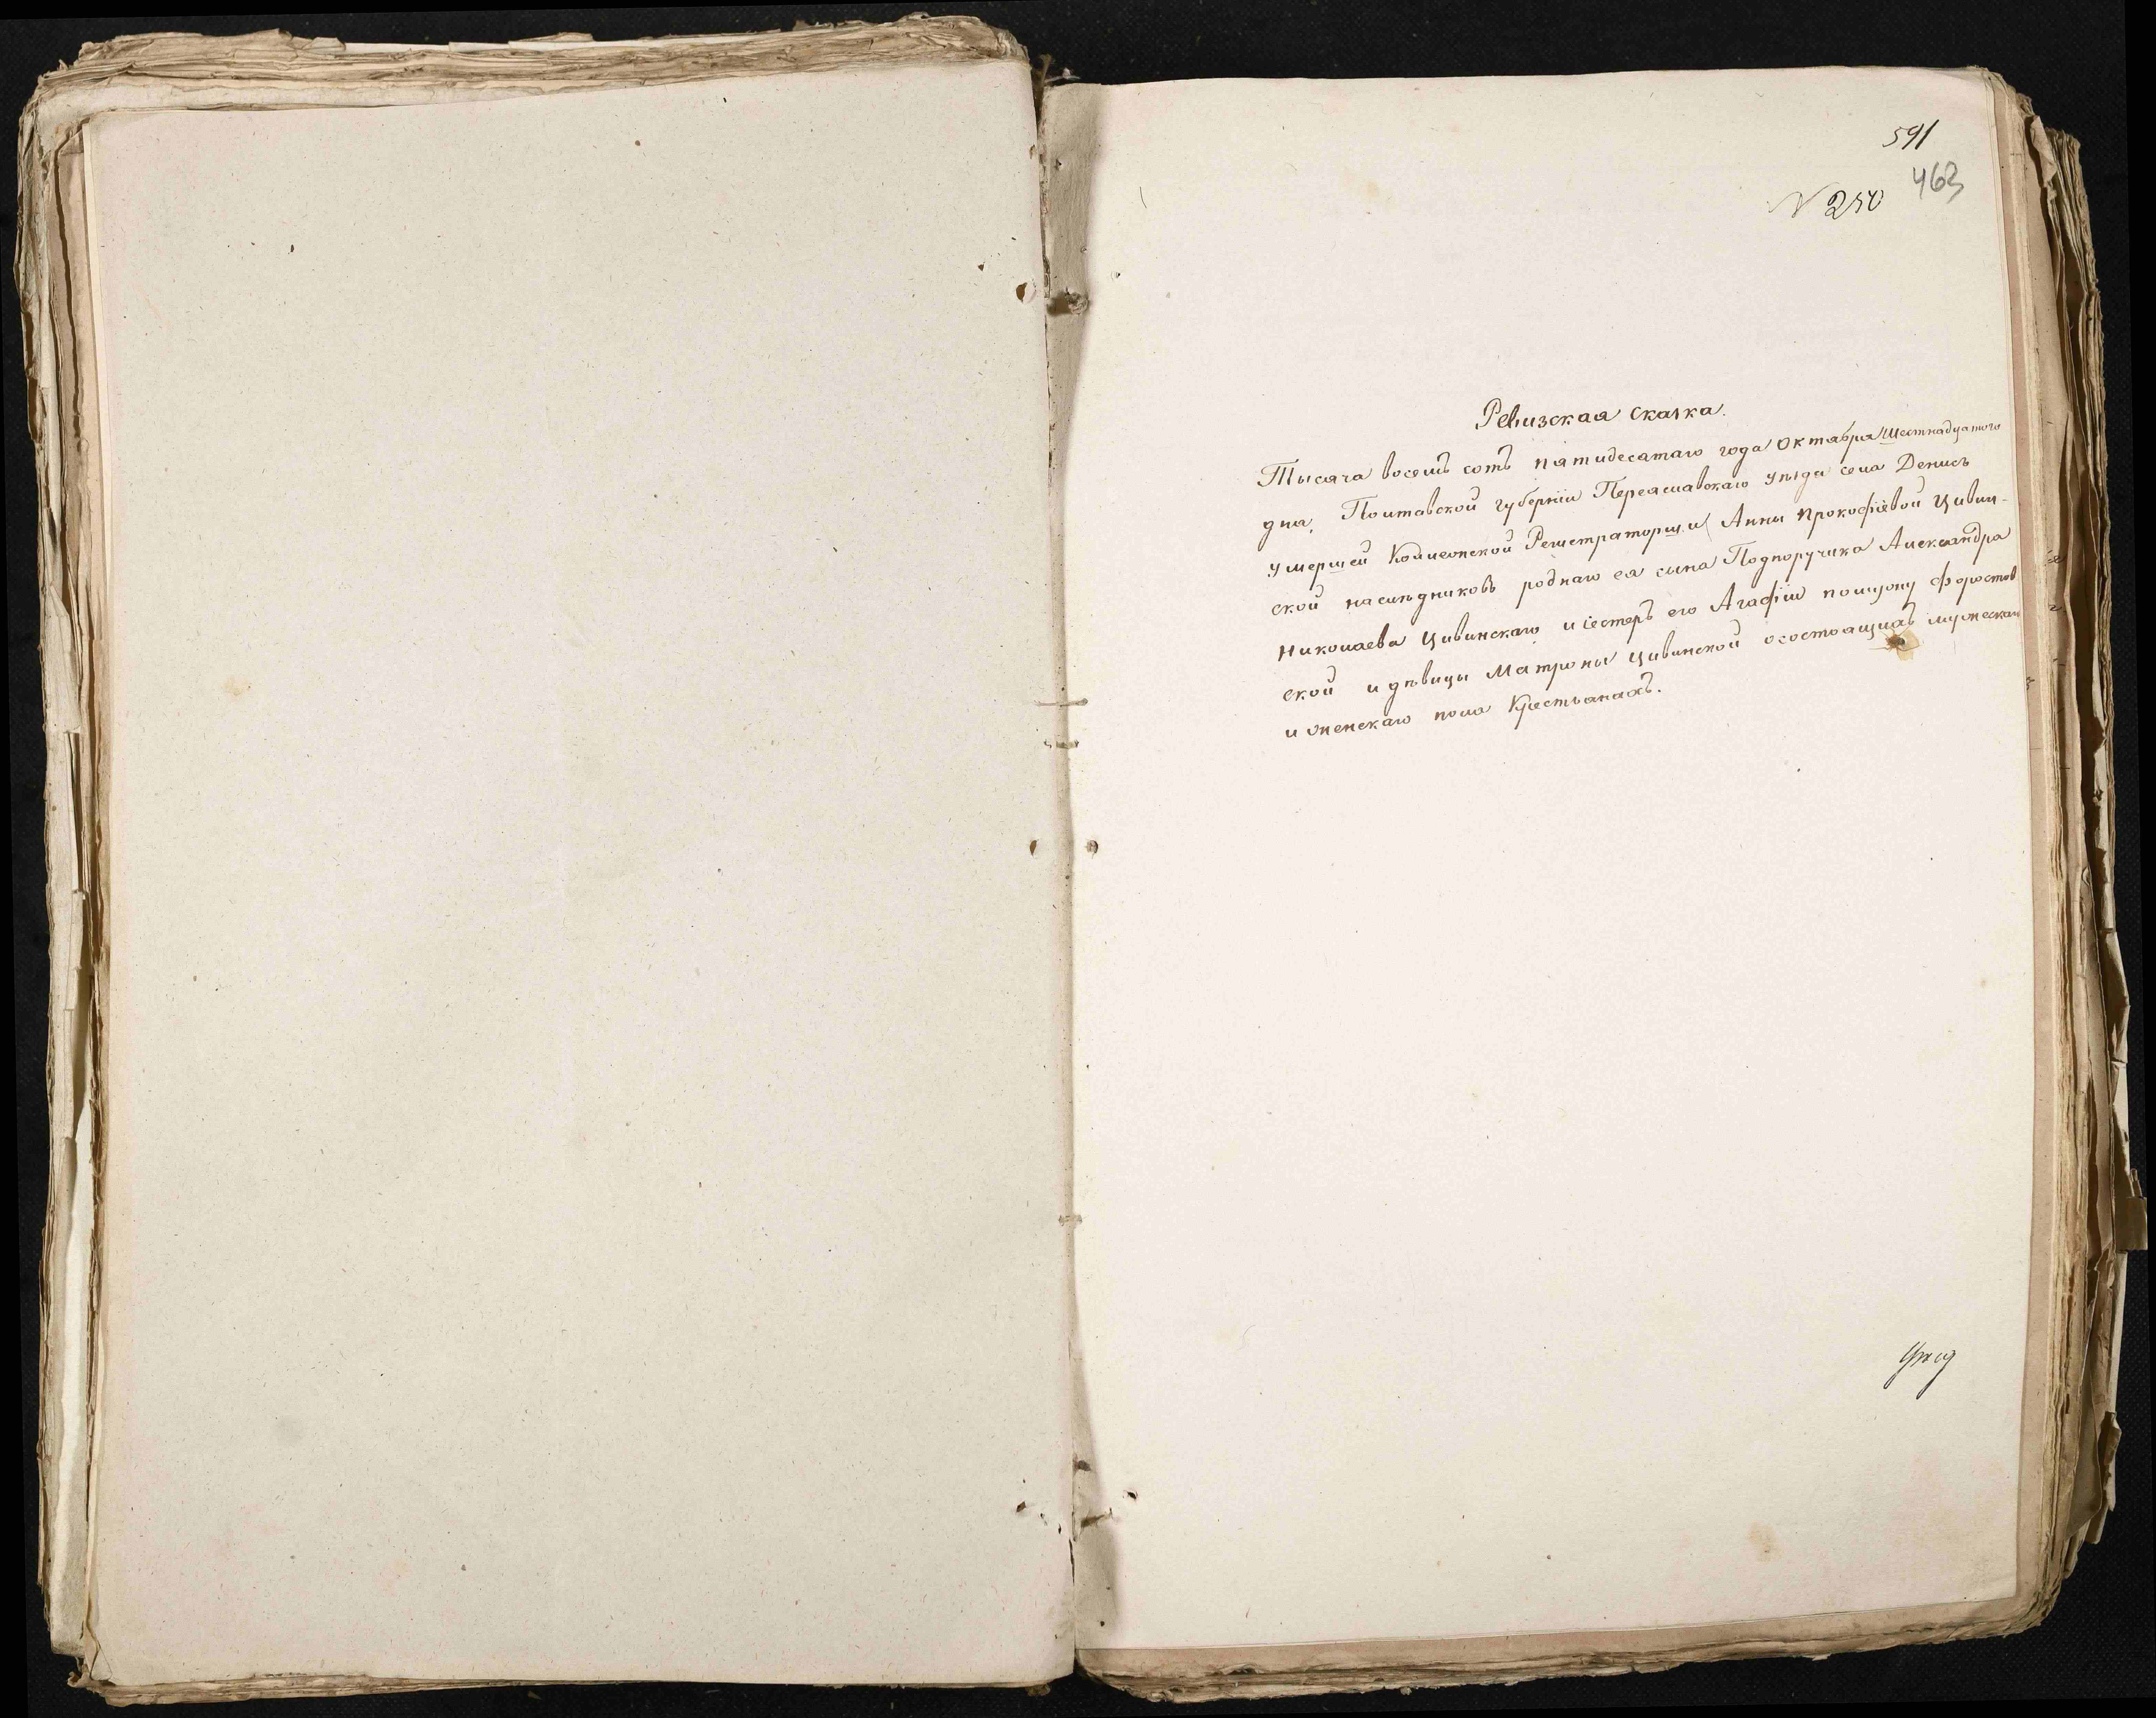 591
463
N 250
Ревизская сказка.
Тысяча восемъ сотъ пятидесятаго года Октября шестнадцатого
дня, Полтавской губерніи Переяславскаго уѣзда села Денисъ
умершей Коллежской Регистраторши Анны Прокофіевой Цивин-
ской наслѣдниковъ роднаго ея сына Подпоручика Александра
Николаева Цивинскаго и сестеръ его Агафіи по мужу Форостов
ской и дѣвицы Матроны Цивинской о состоящихъ мужескаго
и женскаго пола Крестьянахъ.